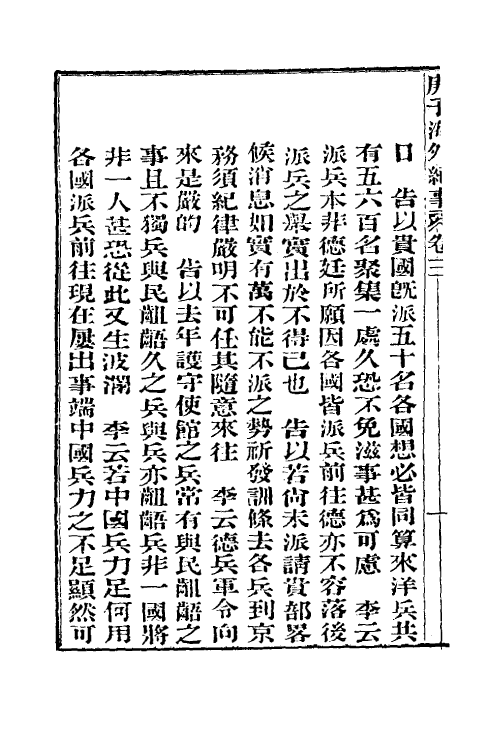 庚子海外紀事卷二
口　告以貴國旣派五十名各國想必皆同算來洋兵共
有五六百名聚集一處久恐不免滋事甚爲可慮　李云
派兵本非德廷所願因各國皆派兵前往德亦不容落後
派兵之舉實出於不得已也　告以若尙未派請貴部畧
候消息如實有萬不能不派之勢祈發訓條去各兵到京
務須紀律嚴明不可任其隨意來往　李云德兵軍令向
來是嚴的　告以去年護守使館之兵常有與民齟齬之
事且不獨兵與民齟齬久之兵與兵亦齟齬兵非一國將
非一人甚恐從此又生波瀾　李云若中國兵力足何用
各國派兵前往現在屢出事端中國兵力之不足顯然可